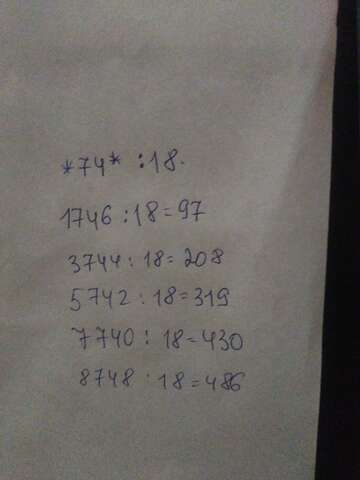 *74* :18.
1746 :18=97
3744: 18= 208
5742 : 18=319
7740 : 18=430
8748 : 18=486